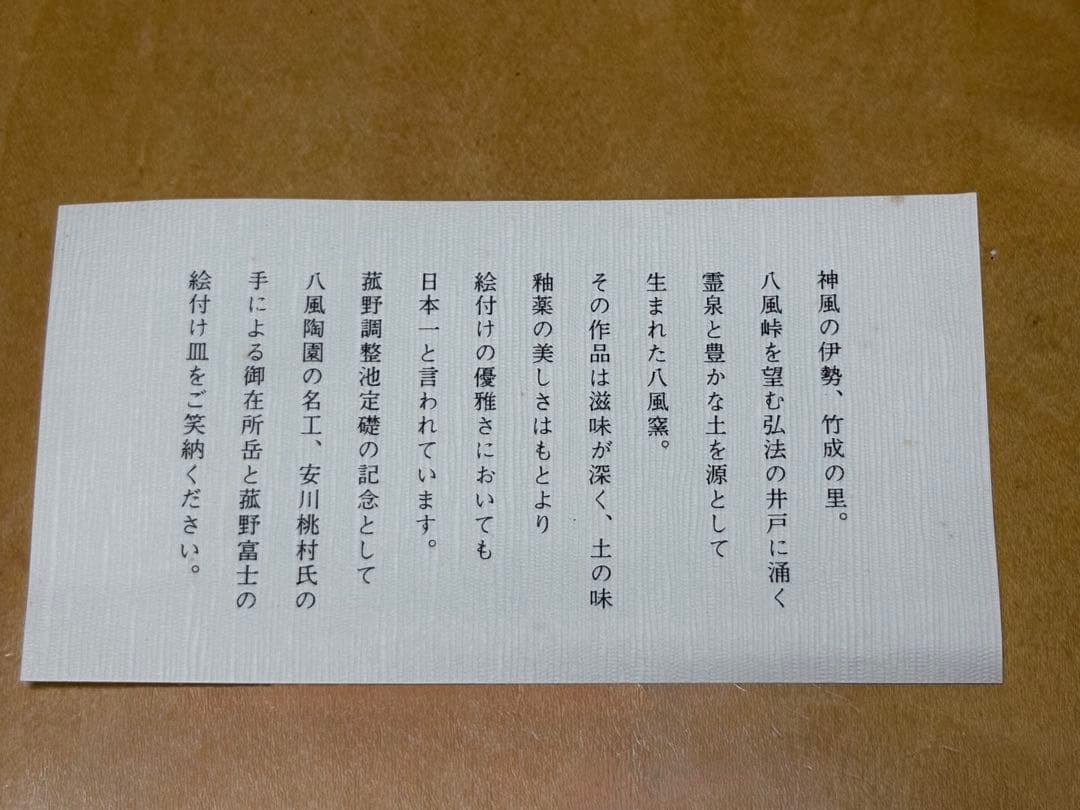 神風の伊勢、竹成の里。
八風峠を望む弘法の井戸に涌く
霊泉と豊かな土を源として
生まれた八風窯。
その作品は滋味が深く、土の味
釉薬の美しさはもとより
絵付けの優雅さにおいても
日本一と言われています。
菰野調整池定礎の記念として
八風陶園の名工、安川桃村氏の
手による御在所岳と菰野富士の
絵付け皿をご笑納ください。